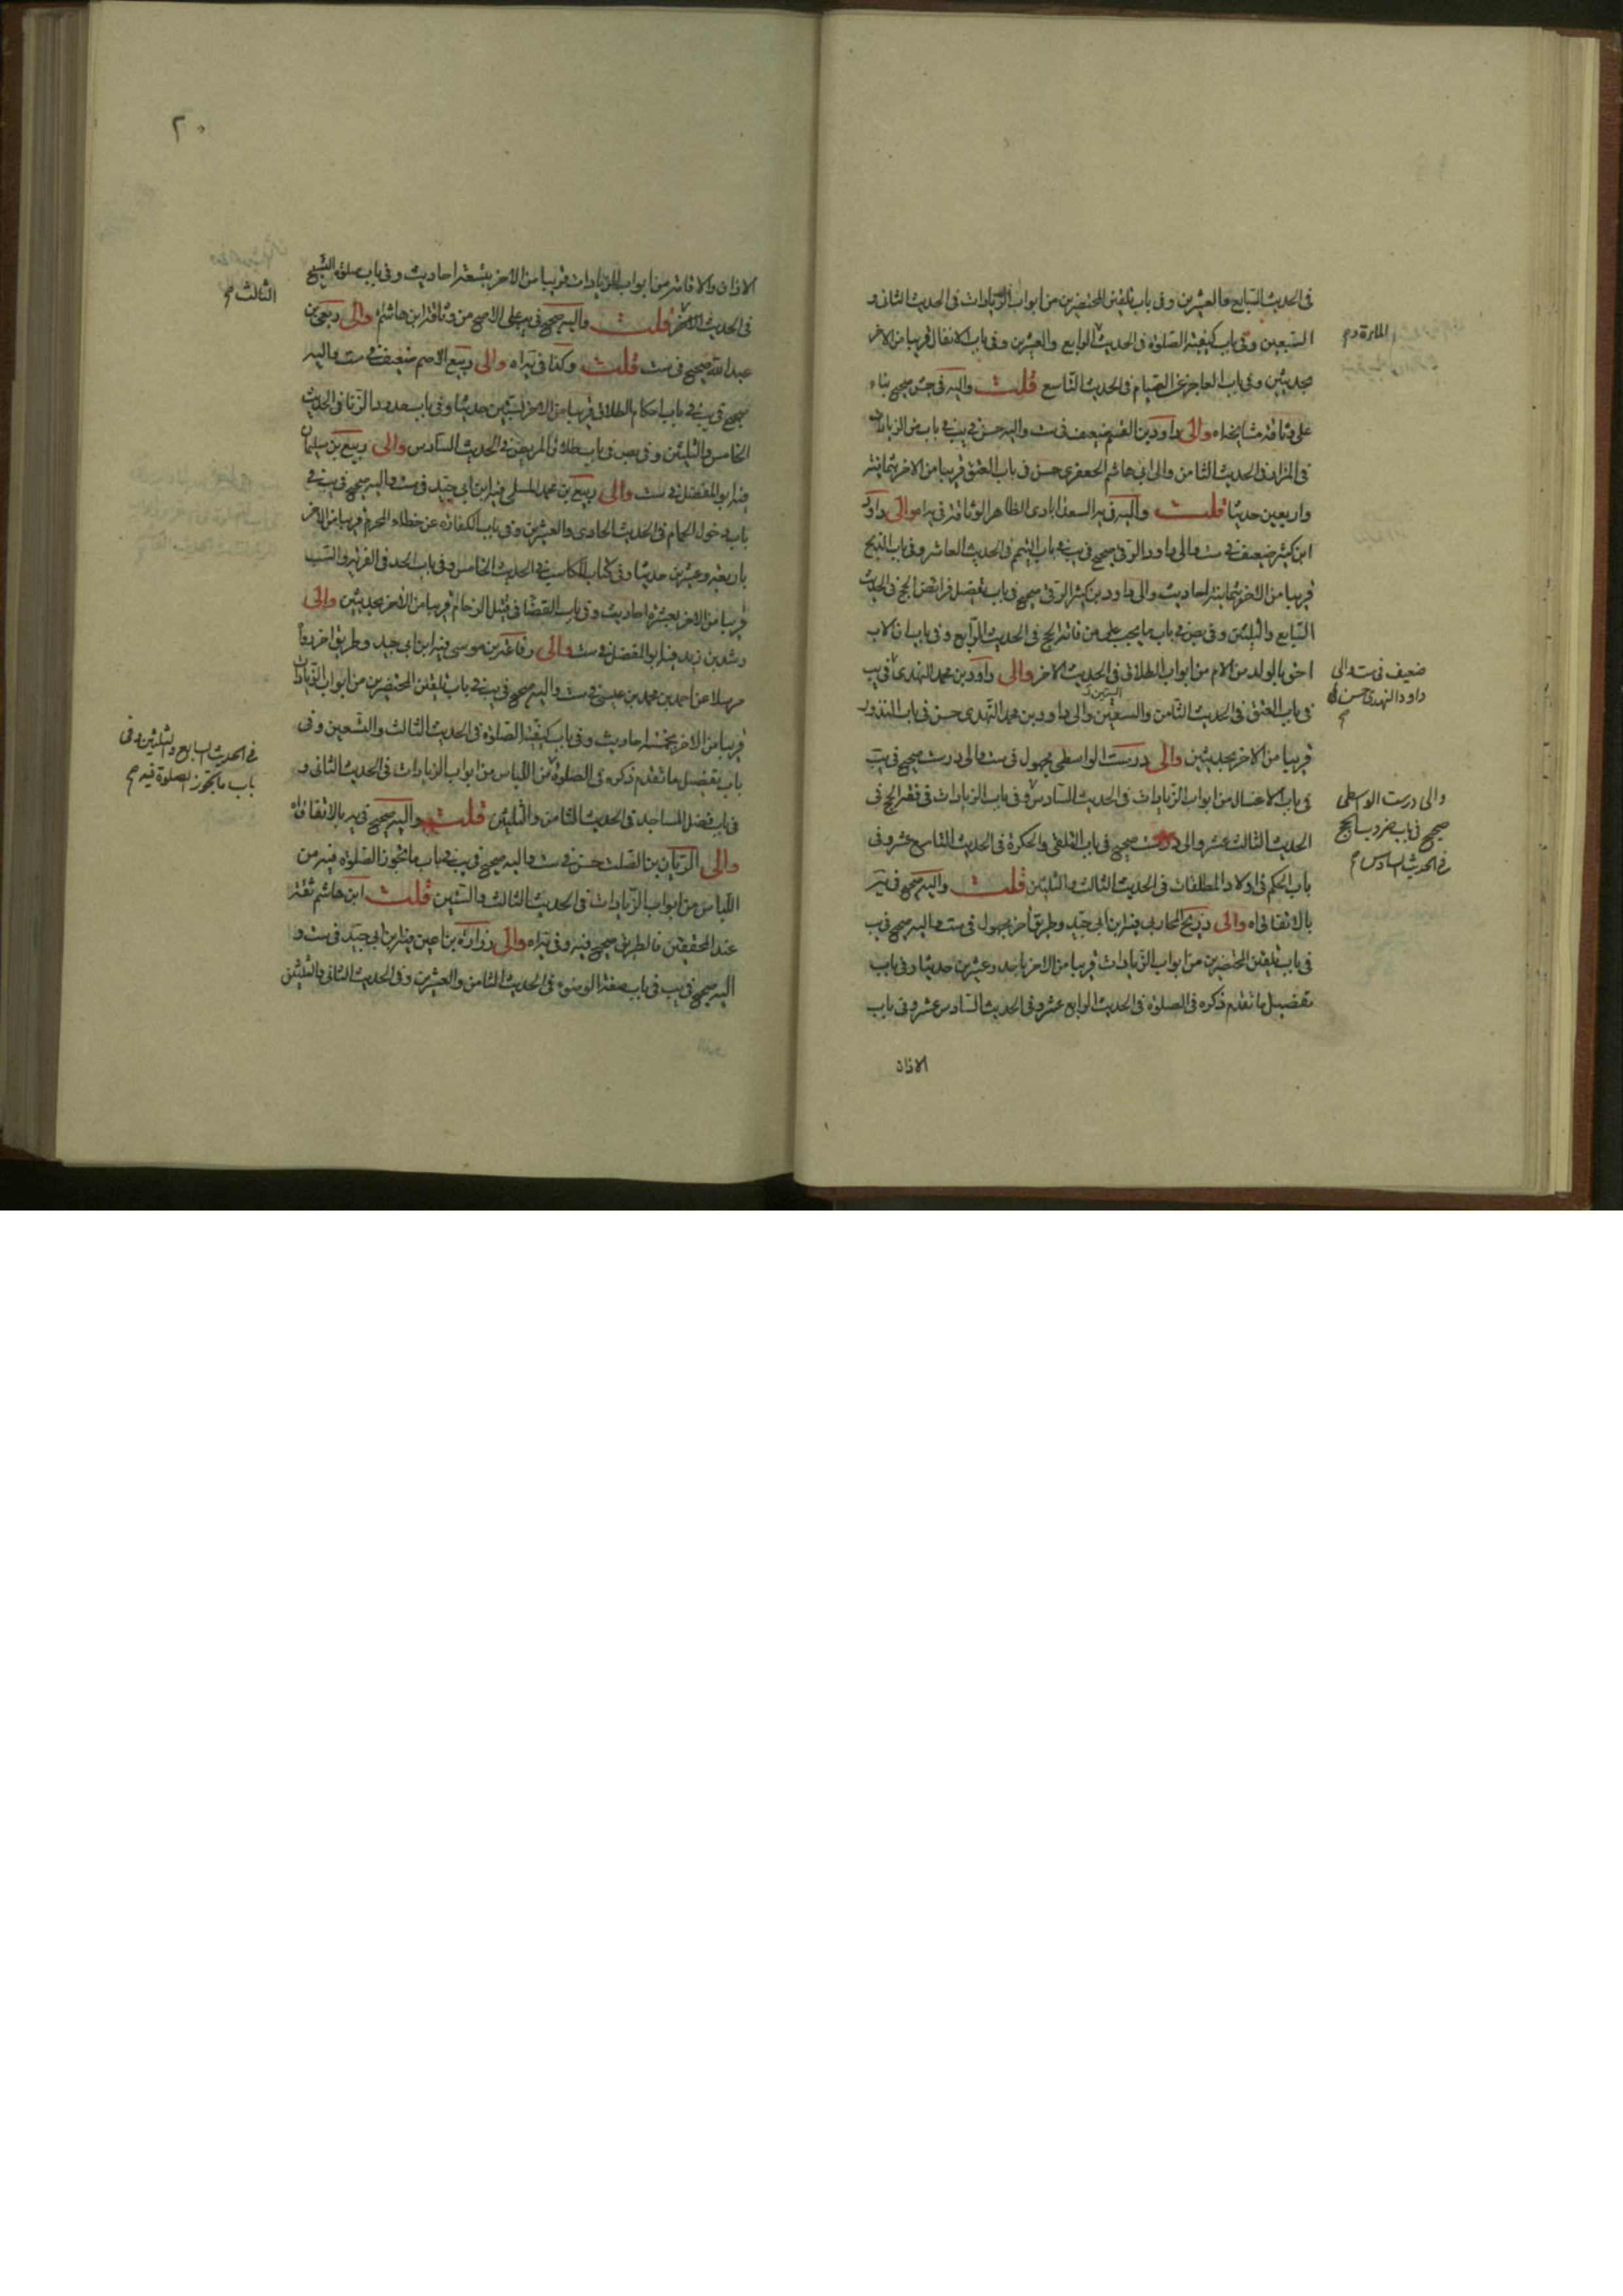 في الحديث السابع والعشرين وفي باب تلقين المحتضرين من ابواب الزيادات في الحديث الثاني و
السبعين وفي باب كيفية الصلوة في الحديث الرابع والعشرين وفي باب الانفال قريبا من الاخر
بحديثين وفي باب العاجز عن الصيام في الحديث التاسع قلت واليه في صحيح بناء
على وثاقة مشايخناه والى داود بن القسم ضعيف في ست واليه حسن في يب في باب من الزيادات
في المزار في الحديث الثامن والى ابي هاشم الجعفري حسن في باب العتق قريبا من الاخر بثمانية
واربعين حديثا قلت واليه في يه السعدابادي الظاهر الوثاقة في يراه والى داود
ابن كثير ضعيف في ست والى داود الرقي صحيح في يب في باب التيمم في الحديث العاشر وفي باب الذبح
قريبا من الاخر بثمانية احاديث والى داود بن كثير الرقي صحيح في باب تفصيل فرايض الحج في الحديث
السابع والثلثين وفي بص في باب ما يجب على من فاته الحج في الحديث الرابع وفي باب ان الاب
احق بالولد من الام من ابواب الطلاق في الحديث الاخر والى داود بن محمد النهدي في يب
في باب العتق في الحديث الثامن والسبعين والى داود بن محمد النهدي حسن في باب النذور
قريبا من الاخر بحديثين والى درست الواسطي مجهول في ست والى درست صحيح في يب
في باب الاغسال من ابواب الزيادات في الحديث السادس وفي باب الزيادات في فقه الحج في
الحديث الثالث عشر والى درست صحيح في باب التلقي والحكرة في الحديث التاسع عشر وفي
باب الحكم في اولاد المطلقات في الحديث الثالث والثلثين قلت واليه صحيح في يه
بالاتفاق اه والى ذريح المحاربي فيه ابن ابي جيد وطريق اخر مجهول في ست واليه صحيح في يب
في باب تلقين المحتضرين من ابواب الزيادات قريبا من الاخر باحد وعشرين حديثا وفي باب
تفصيل ما تقدم ذكره في الصلوة في الحديث الرابع عشر وفي الحديث السادس عشر وفي باب
الاذان
ضعيف في ست والى
داود النهدي حسن
والى درست الواسطي
صحيح في باب ضروب الحج
في الحديث السادس
٢٠
الاذان والاقامة من ابواب الزيادات قريبا من الاخر بتسعة احاديث وفي باب صلوة التسبيح
في الحديث الاخر قلت واليه صحيح في يه على الاصح من وثاقة ابن هاشم والى ربعي بن
عبدالله صحيح في ست قلت وكذا في يراه والى ربيع الاصم ضعيف في ست واليه
صحيح في يب في باب احكام الطلاق قريبا من الاخر بستين حديثا وفي باب حدود الزنا في الحديث
الخامس والثلثين وفي بص في باب طلاق المريض في الحديث السادس والى ربيع بن سليمان
فيه ابو المفضل في ست والى ربيع بن محمد المسلي فيه ابن ابي جيد في ست واليه صحيح في يب في
باب دخول الحمام في الحديث الحادي والعشرين وفي باب الكفارة عن خطاء المحرم قريبا من الاخر
باربعة وعشرين حديثا وفي كتاب المكاسب في الحديث الخامس وفي باب الحد في الفرية والسب
قريبا من الاخر بعشرة احاديث وفي باب القضا في قتيل الزحام قريبا من الاخر بحديثين والى
رشد بن زيد فيه ابو المفضل في ست والى رفاعة بن موسى فيه ابن ابي جيد وطريق اخر رواه
مرسلا عن احمد بن محمد بن عيسى في ست واليه صحيح في يب في باب تلقين المحتضرين من ابواب الزيادات
قريبا من الاخر بخمسة احاديث وفي باب كيفية الصلوة في الحديث الثالث والتسعين وفي
باب تفصيل ما تقدم ذكره في الصلوة من اللباس من ابواب الزيادات في الحديث الثاني و
في باب فضل المساجد في الحديث الثامن والثلثين قلت واليه صحيح في يه بالاتفاق اه
والى الريان بن الصلت حسن في ست واليه صحيح في يب في باب ما تجوز الصلوة فيه من
اللباس من ابواب الزيادات في الحديث الثالث والستين قلت ابن هاشم ثقة
عند المحققين فالطريق صحيح فيه وفي يراه والى زرارة بن اعين فيه ابن ابي جيد في ست و
اليه صحيح في يب في باب صفة الوضوء في الحديث الثامن والعشرين وفي الحديث الثاني والثلثين
الثالث
في الحديث السابع والثلثين وفي
باب ما تجوز الصلوة فيه